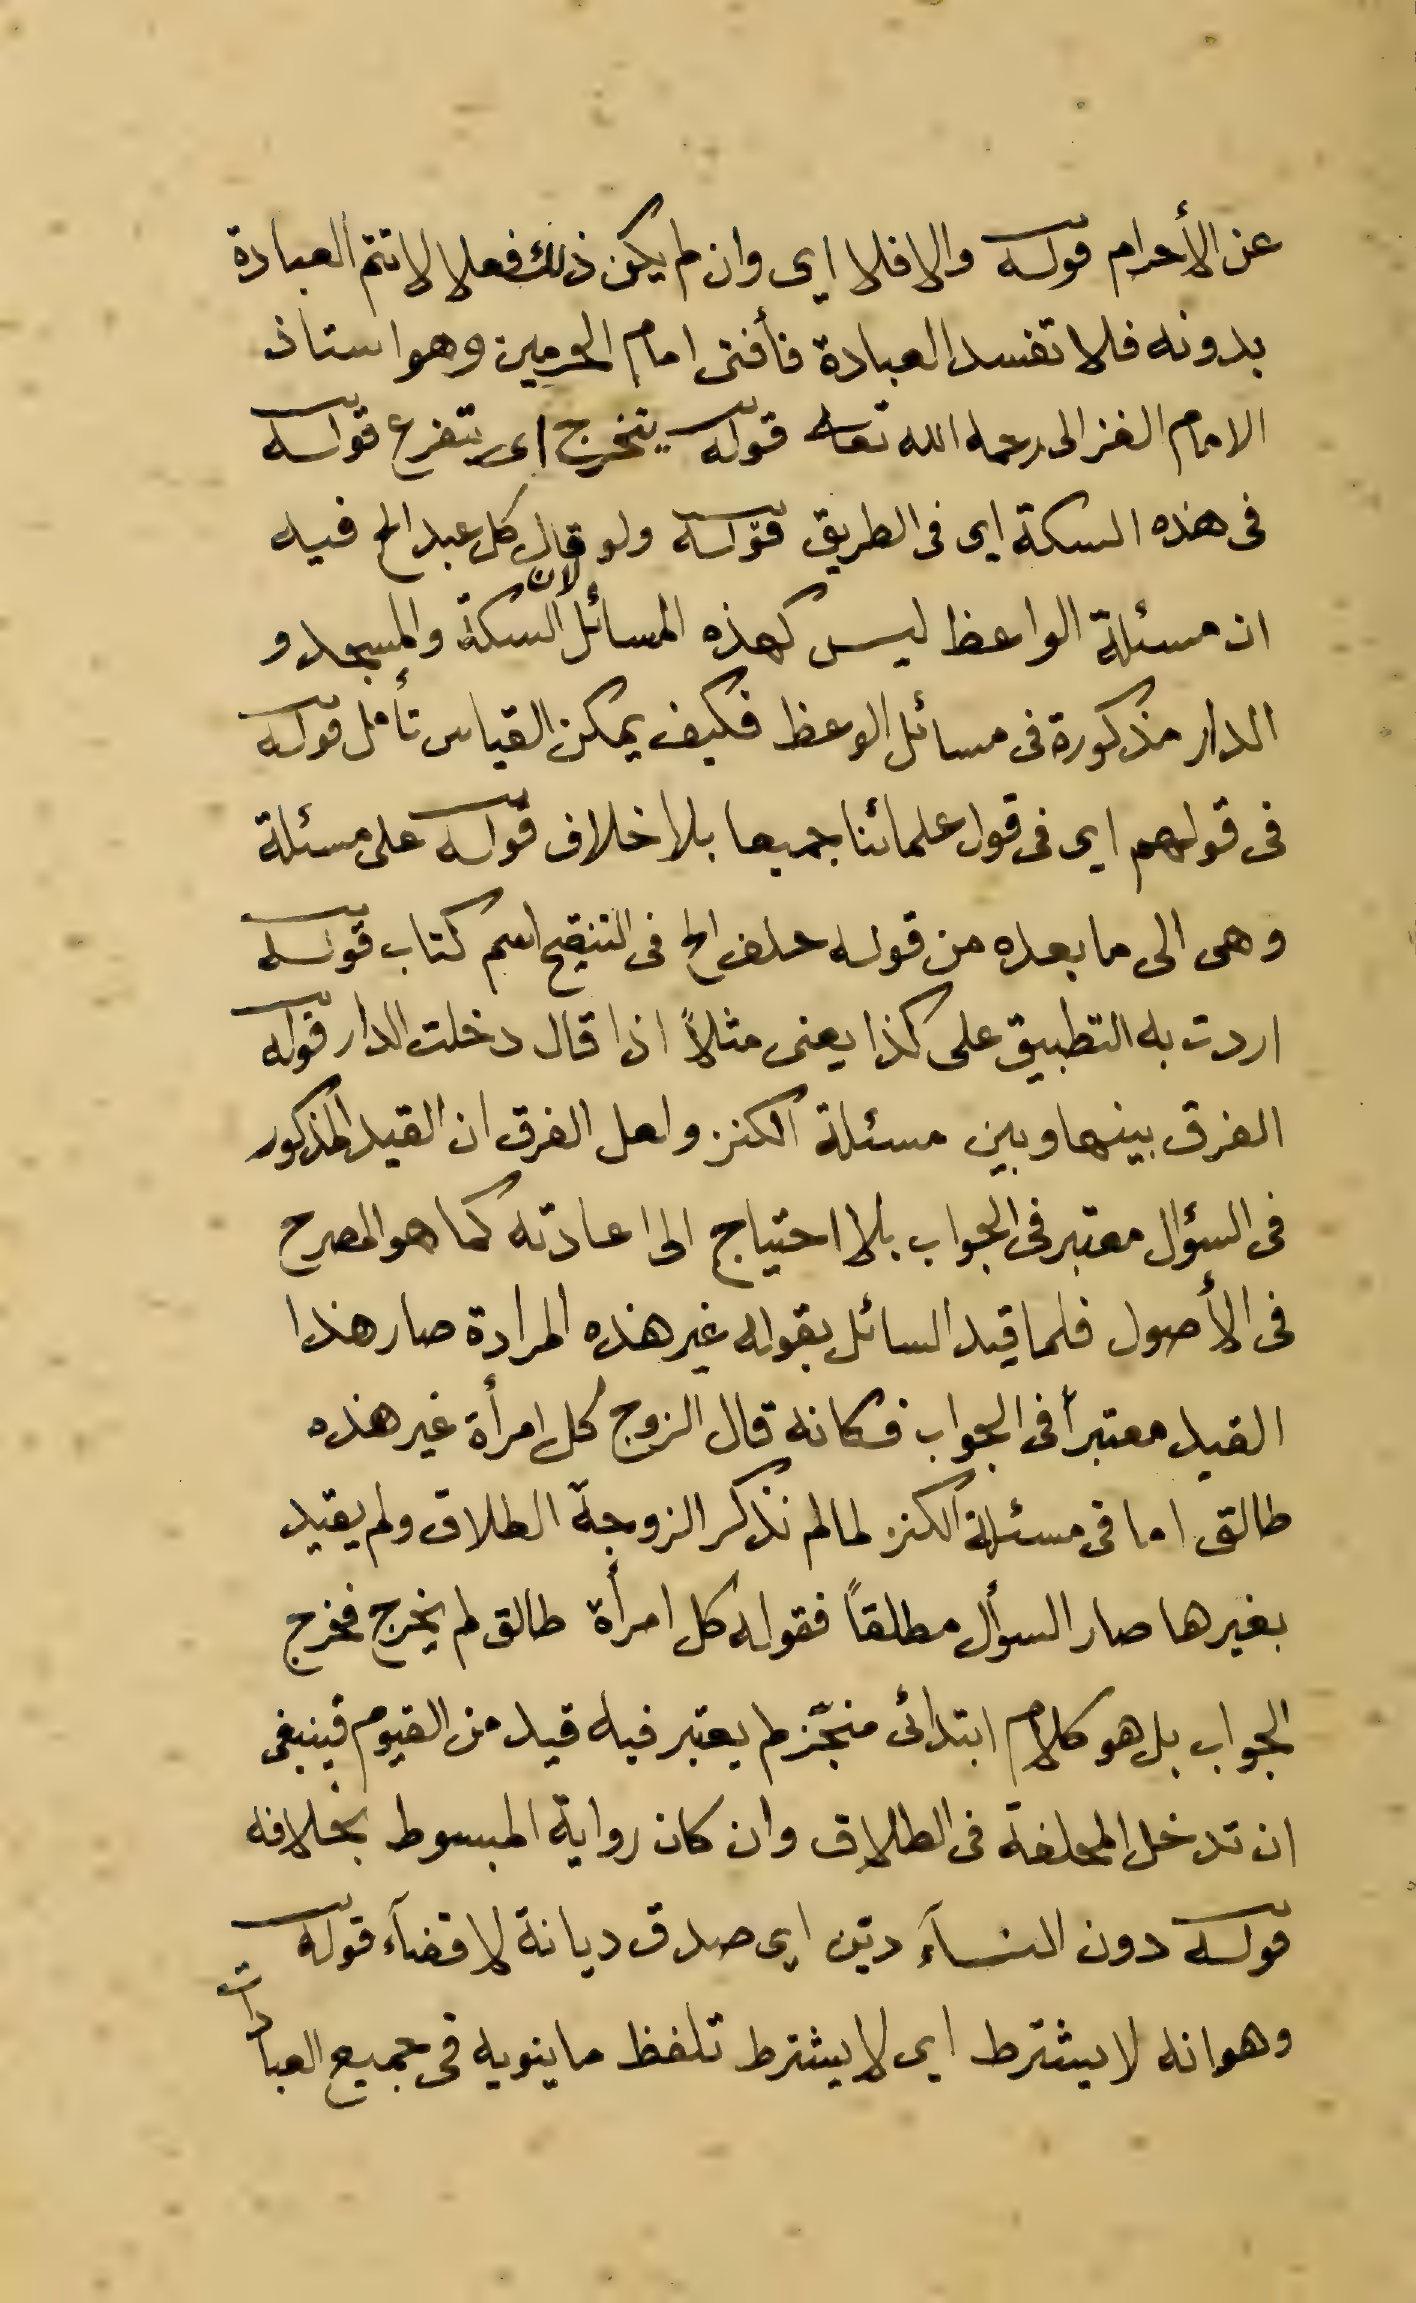 عن الأحرام قوله والا فلا اى وان لم يكن ذلك فعلا لا تتم العبادة
بدونه فلا تفسد العبادة فأفتى امام الحرمين وهو استاذ
الامام الغزالى رحمه الله تعالى قوله يتخرج اى يتفرع قوله
فى هذه السكة اى فى الطريق قوله ولو قال كل عبد الخ فيه
ان مسئلة الواعظ ليس كهذه المسائل لان السكة والمسجد و
الدار مذكورة فى مسائل الوعظ فكيف يمكن القياس تأمل قوله
فى قولهم اى فى قول علمائنا جميعا بلا خلاف قوله على مسئلة
وهى الى ما بعده من قوله حلف الخ فى التنقيح اسم كتاب قوله
اردت به التطبيق على كذا يعنى مثلاً اذا قال دخلت الدار قوله
الفرق بينها وبين مسئلة الكنز ولعل الفرق ان القيد المذكور
فى السؤال معتبر فى الجواب بلا احتياج الى اعادته كما هو المصرح
فى الأصول فلما قيد السائل بقوله غير هذه المرادة صار هذا
القيد معتبرأ فى الجواب فكانه قال الزوج كل امرأة غير هذه
طالق اما فى مسئلة الكنز لما لم نذكر الزوجة الطلاق ولم يقيد
بغيرها صار السوأل مطلقاً فقوله كل امرأة طالق لم يخرج مخرج
الجواب بل هو كلام ابتدائى منجّز لم يعتبر فيه قيد من القيوم فينبغى
ان تدخل المحلفة فى الطلاق وان كان رواية المبسوط بخلافه
قوله دون النسآء ديّن اى صدق ديانة لا قضآء قوله
وهو انه لا يشترط اى لا يشترط تلفظ ما ينويه فى جميع العبادات